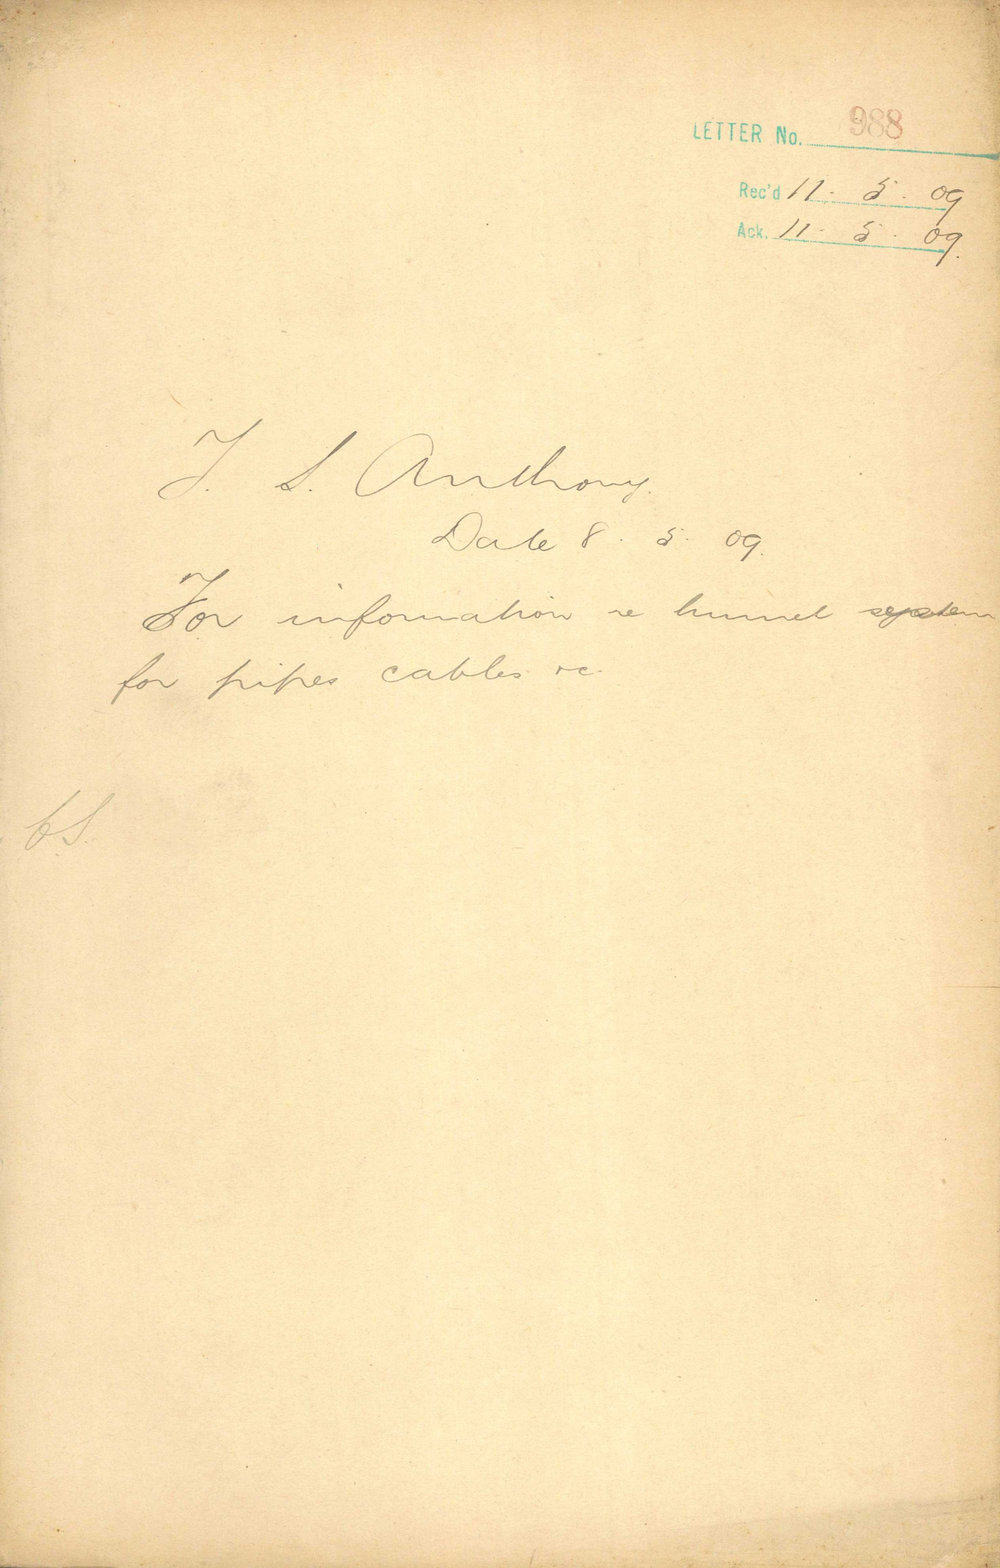 LETTER No. 988
Rec'd 11. 5. 09
Ack. 11. 5. 09.
T. S. Anthony.
Date 8. 5. 09.
For information re tunnel system
for pipes cables &c.